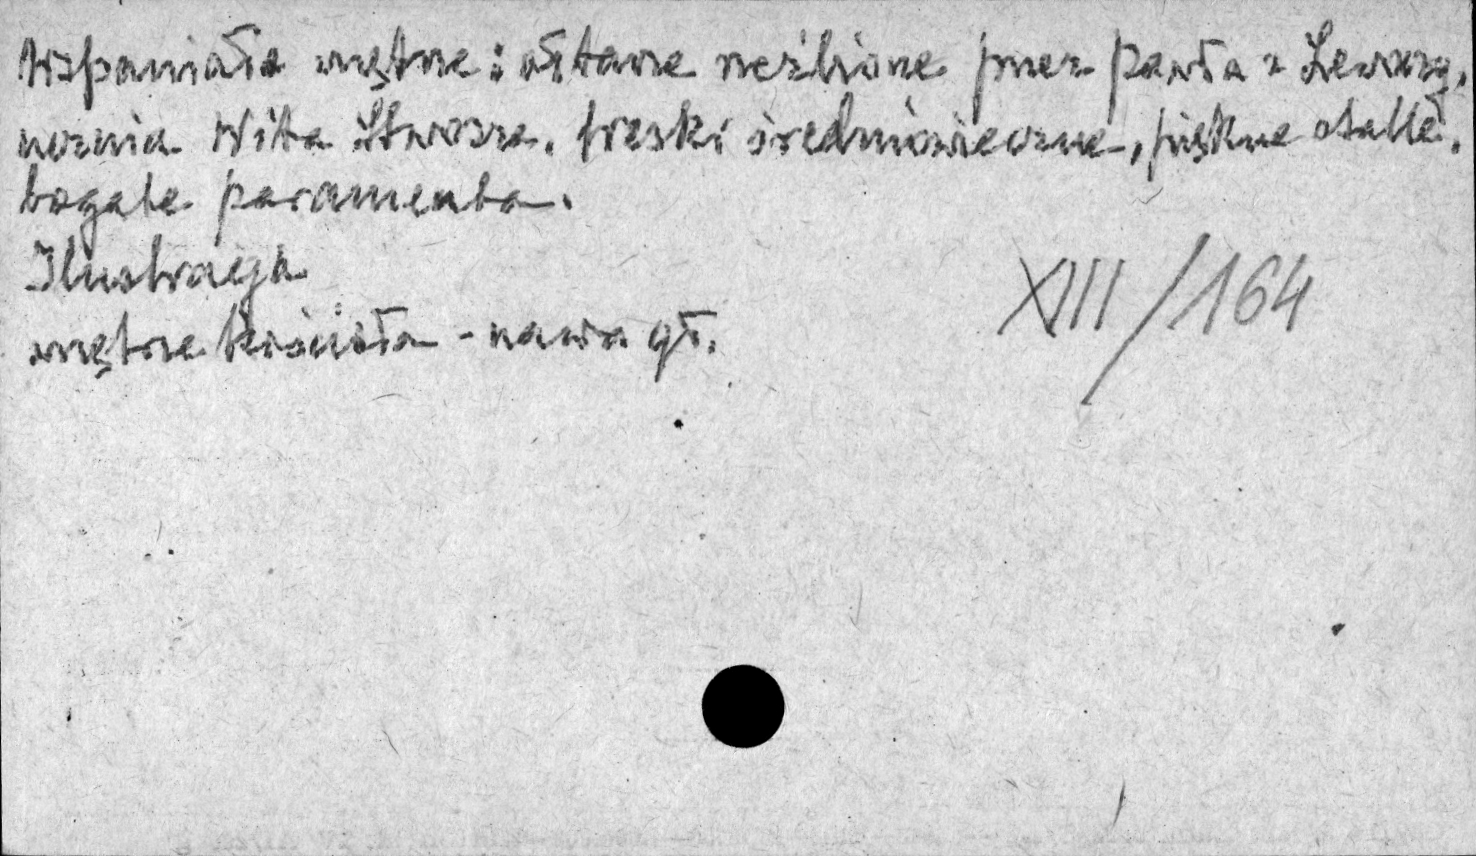 Wspaniałe wnętrze: ołtarze rzeźbione przez Pawła z Lewoczy,
ucznia Wita Stwosza, freski średniowieczne, piękne stalle,
bogate paramenta.
Ilustracja
wnętrze kościoła - nawa gł.
XIII/164